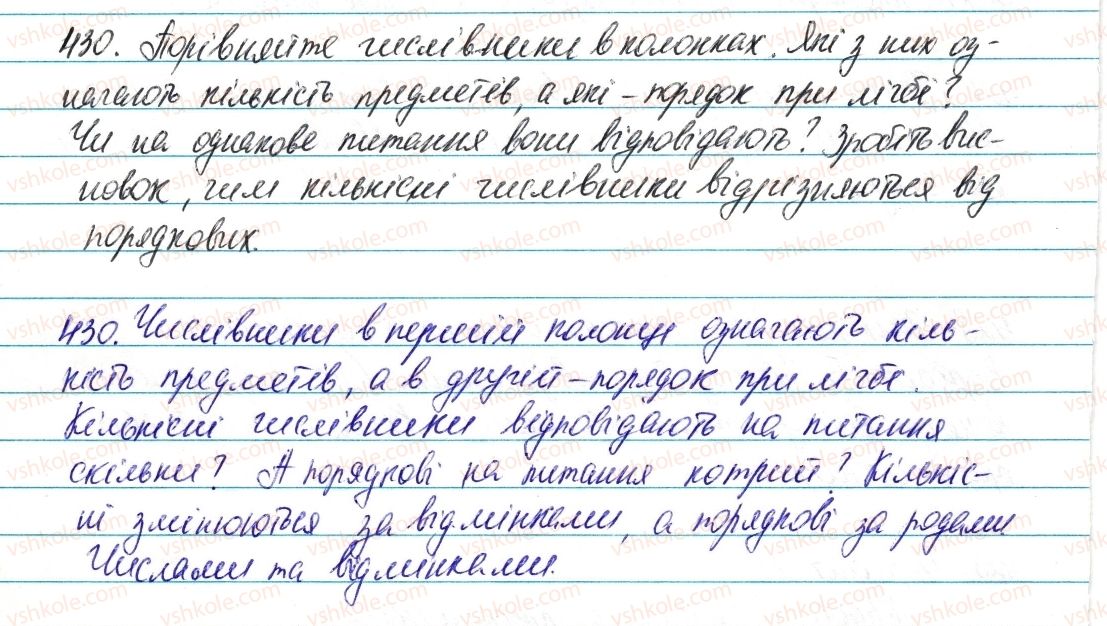 430. Порівняйте числівники в колонках. Які з них оз-
начають кількість предметів, а які - порядок при лічбі?
Чи на однакове питання вони відповідають? Зробіть вис-
новок, чим кількісні числівники відрізняються від
порядкових.
430. Числівники в першій колонці означають кіль-
кість предметів, а в другій - порядок при лічбі.
Кількісні числівники відповідають на питання
скільки? А порядкові на питання котрий? Кількіс-
ні змінюються за відмінками, а порядкові за родами
Числами та відминками.